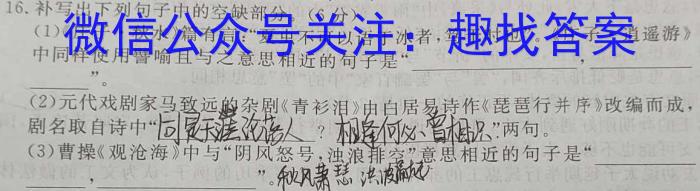 16.补写出下列句子中的空缺部分。(6分)
微信公众号关注：趣找答案
(1)秋水》篇有言:"夏虫不可以语于冰者,逍遥游》
中同样使用譬喻且与之意思相近的句子是"
"。
(2)元代戏剧家马致远的杂剧《青衫泪》由白居易诗作《琵琶行并序》改编而成,
剧名取自诗中"同是天涯沦落人?相逢何必曾相识"两句。
(3)曹操《观沧海》中与"阴风怒号,浊浪排空"意思相近的句子是"
,"。秋风萧瑟 洪波涌起